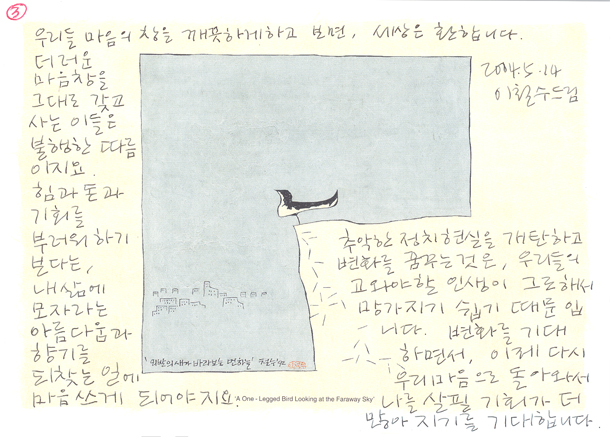 ③
우리들 마음의 창을 깨끗하게하고 보면, 세상은 환합니다.
더러운
마음창을
그대로 갖고
사는 이들은
불행한 따름
이지요.
힘과 돈과
기회를
부러워하기
보다는,
내 삶에
모자라는
아름다움과
향기를
되찾는 일에
마음쓰게 되어야지요.
2004.5.14
이철수드림
추악한 정치현실을 개탄하고
변화를 꿈꾸는것은, 우리들의
고와야할 인생이 그로해서
망가지기 쉽기 때문입
니다. 변화를 기대
하면서, 이제 다시
우리마음으로 돌아와서
나를 살필 기회가 더
많아지기를 기대합니다.
'외발의새가 바라보는 먼하늘' 철수 '92
'A One - Legged Bird Looking at the Faraway Sky'